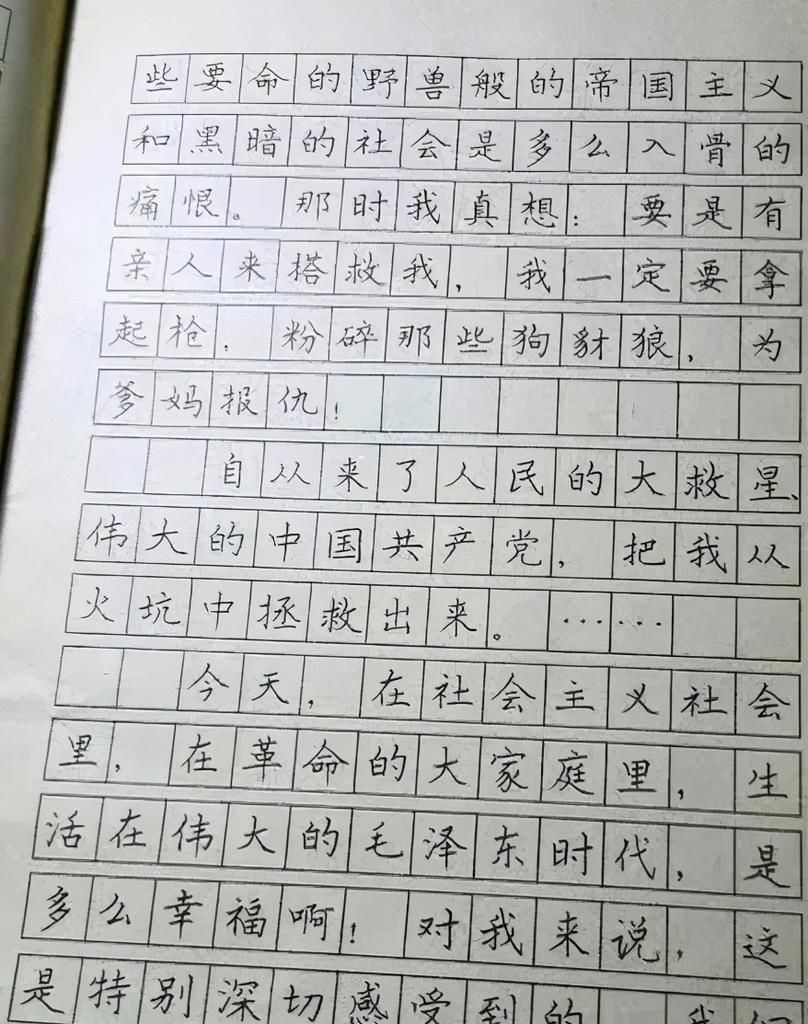 些要命的野兽般的帝国主义
和黑暗的社会是多么入骨的
痛恨。那时我真想：要是有
亲人来搭救我，我一定要拿
起枪，粉碎那些狗豺狼，为
爹妈报仇！
自从来了人民的大救星、
伟大的中国共产党，把我从
火坑中拯救出来。……
今天，在社会主义社会
里，在革命的大家庭里，生
活在伟大的毛泽东时代，是
多么幸福啊！对我来说，这
是特别深切感受到的 我们